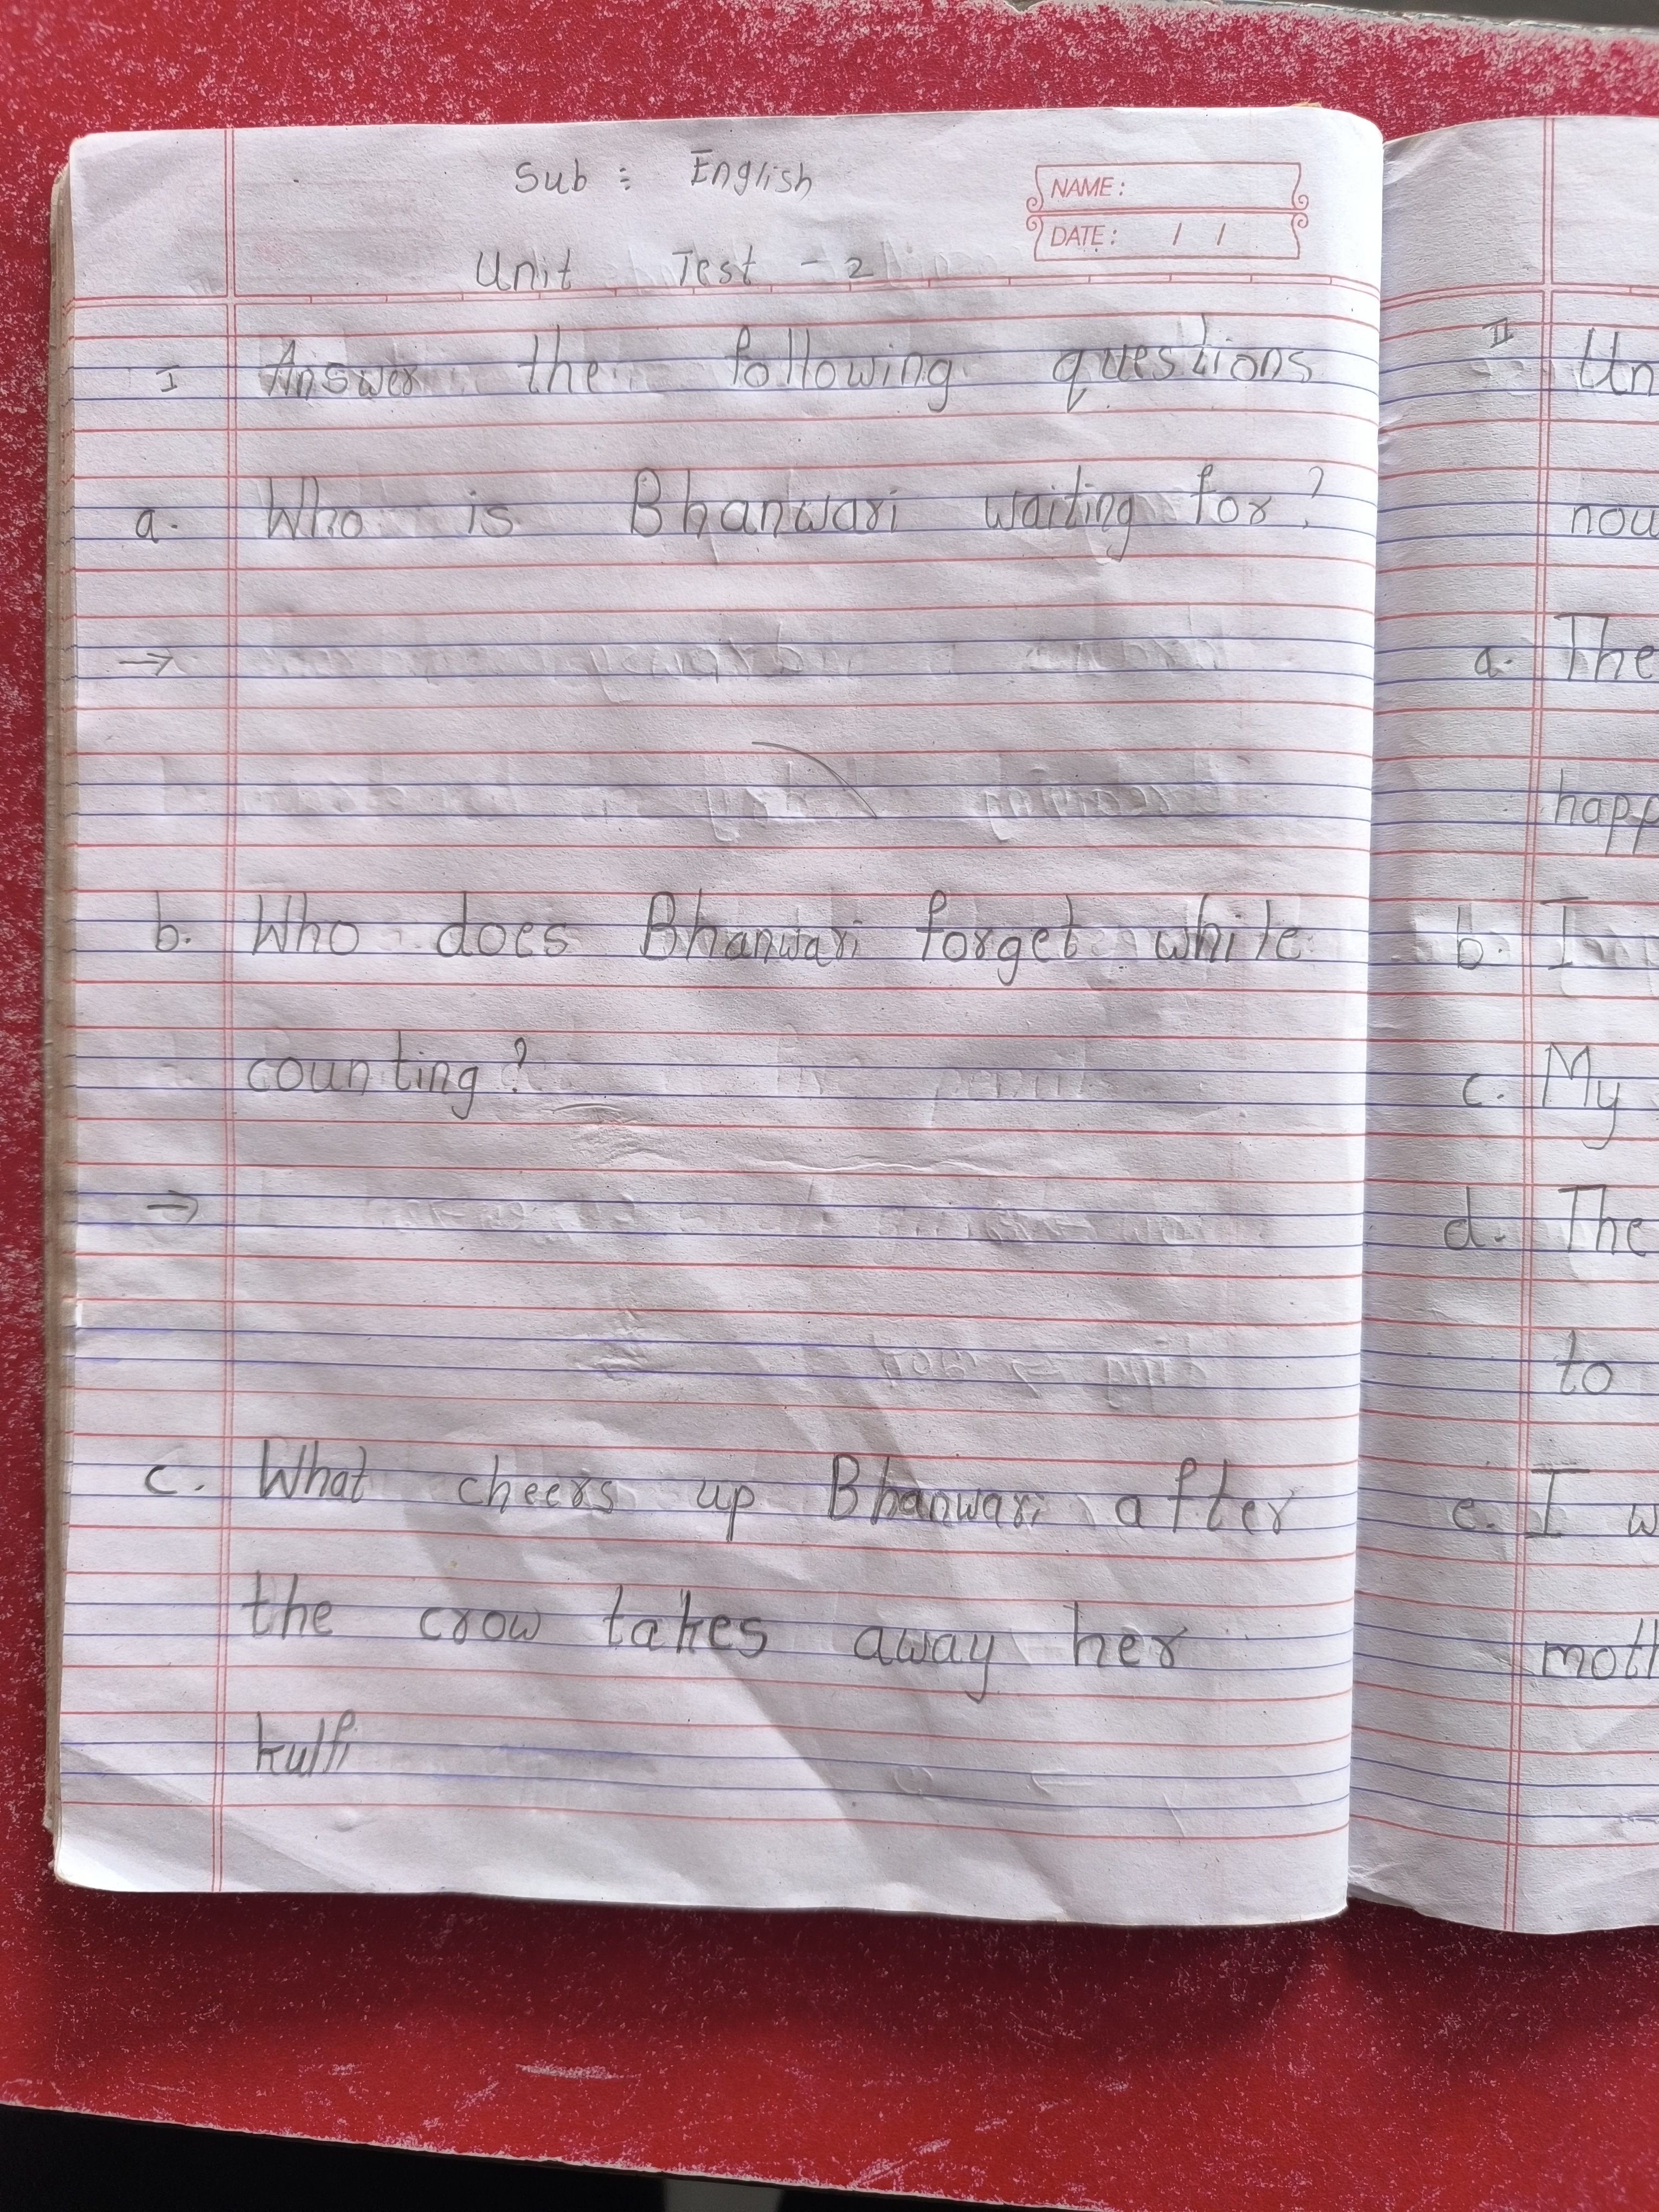 Sub : English
NAME :
DATE : / /
Unit Test - 2
I Answer the following questions
a. Who is Bhanwari waiting for?
→
b. Who does Bhanwari forget while
counting?
→
c. What cheers up Bhanwari after
the crow takes away her
kulfi
II Un
nou
a. The
happ
b. I
c. My
d. The
to
e. I w
moth